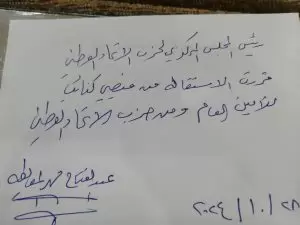 رئيس المجلس المركزي لحزب الاتحاد الوطني
قررت الاستقالة من منصبي كنائب
للأمين العام ومن حزب الاتحاد الوطني
عبدالفتاح
٢٠٢٤/١٠/٢٨